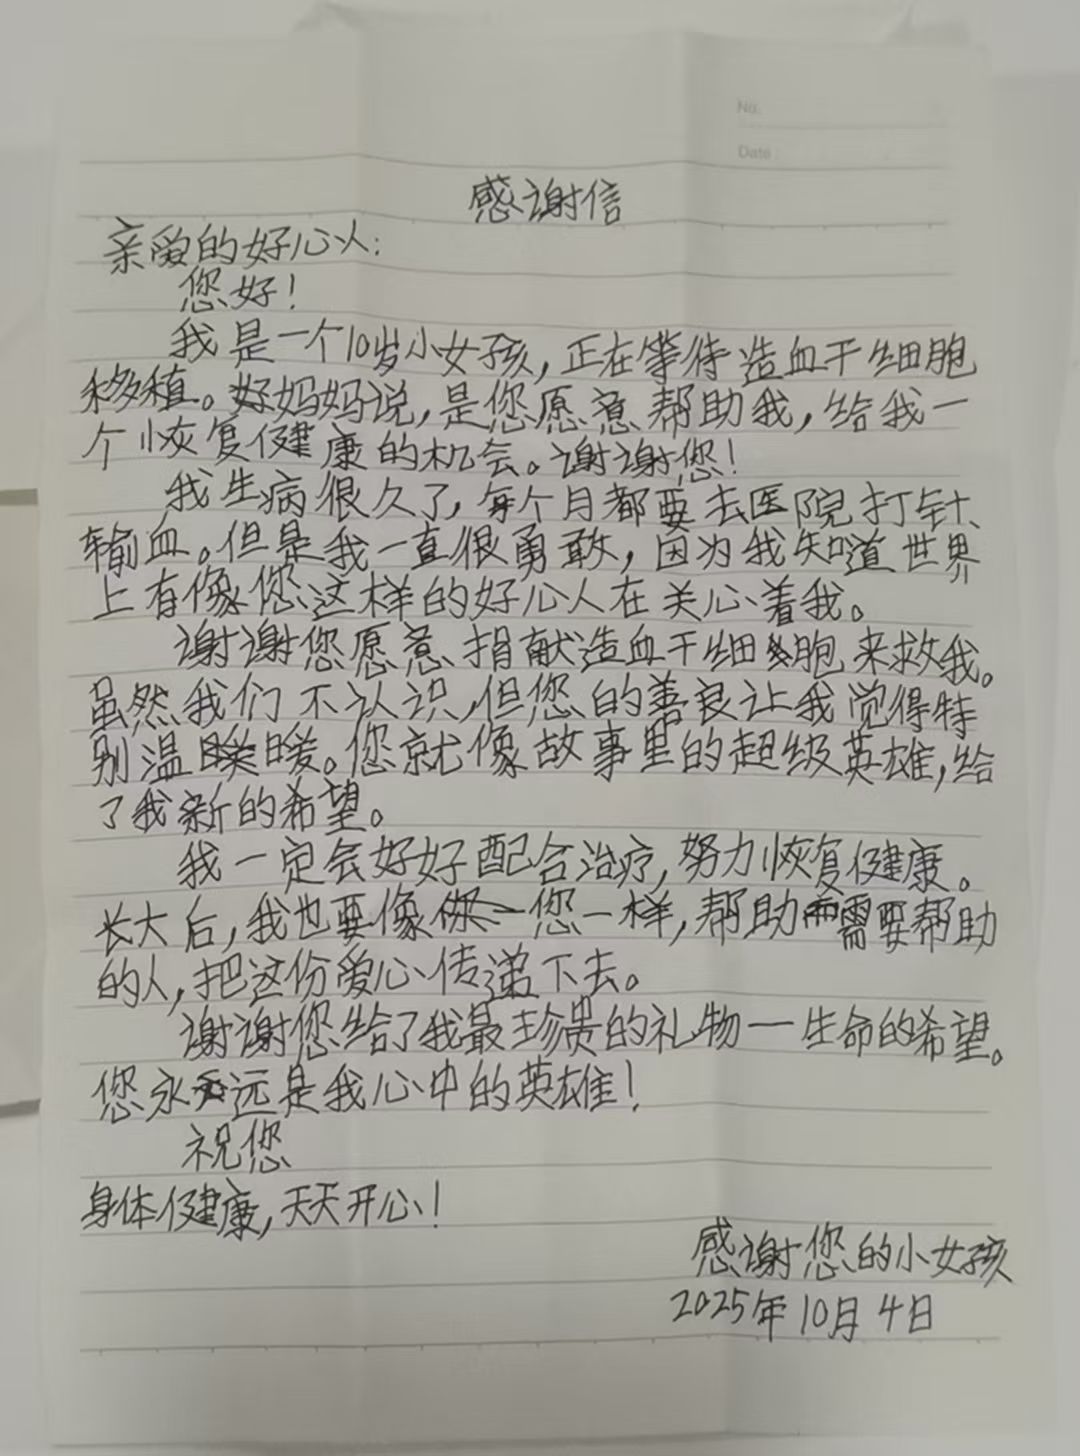 No.
Date
感谢信
亲爱的好心人：
您好！
我是一个10岁小女孩，正在等待造血干细胞
移植。好妈妈说，是您愿意帮助我，给我一
个恢复健康的机会。谢谢您！
我生病很久了，每个月都要去医院打针、
输血。但是我一直很勇敢，因为我知道世界
上有像您这样的好心人在关心着我。
谢谢您愿意捐献造血干细胞来救我。
虽然我们不认识，但您的善良让我觉得特
别温暖。您就像故事里的超级英雄，给
了我新的希望。
我一定会好好配合治疗，努力恢复健康。
长大后，我也要像您一样，帮助需要帮助
的人，把这份爱心传递下去。
谢谢您给了我最珍贵的礼物一生命的希望。
您永远是我心中的英雄！
祝您
身体健康，天天开心！
感谢您的小女孩
2025年10月4日